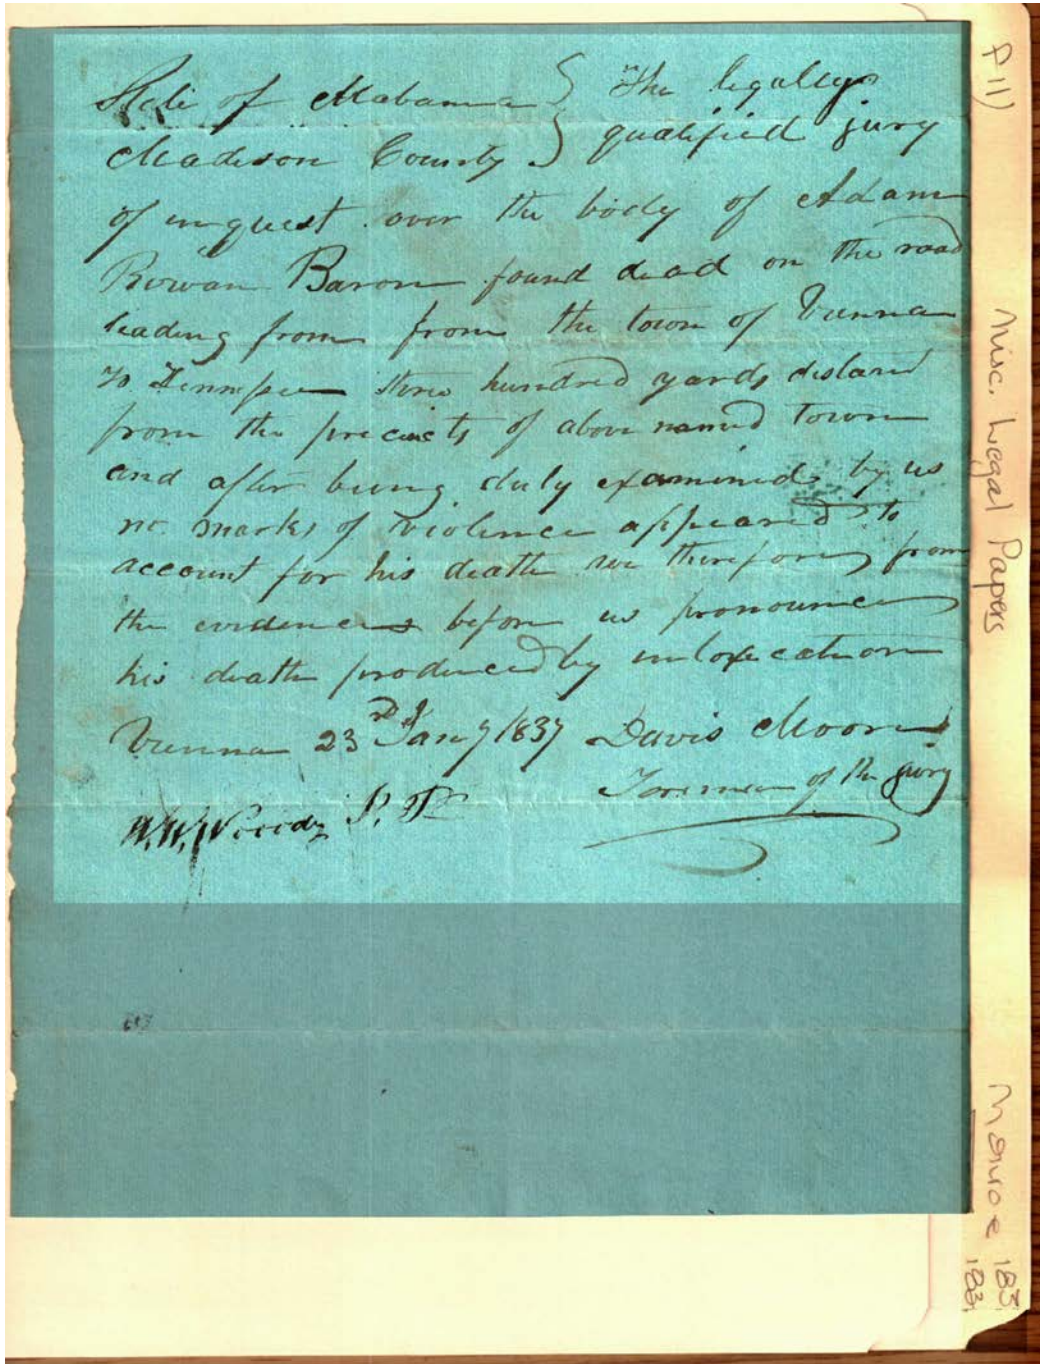 State of Alabama } The legally
Madison County } qualified jury
of inquest over the body of Adam
Rowan Baron found dead on the road
leading from from the town of Vienna
to Tennessee three hundred yards distant
from the precincts of above named town
and after being duly examined by us
no marks of violence appeared to
account for his death we therefore from
the evidences before us pronounce
his death produced by intoxication
Vienna 23rd Jany 1837 Davis Moore
Foreman of the jury
W.W. Woody J. P.
P11) Misc. Legal Papers Monroe 183
183